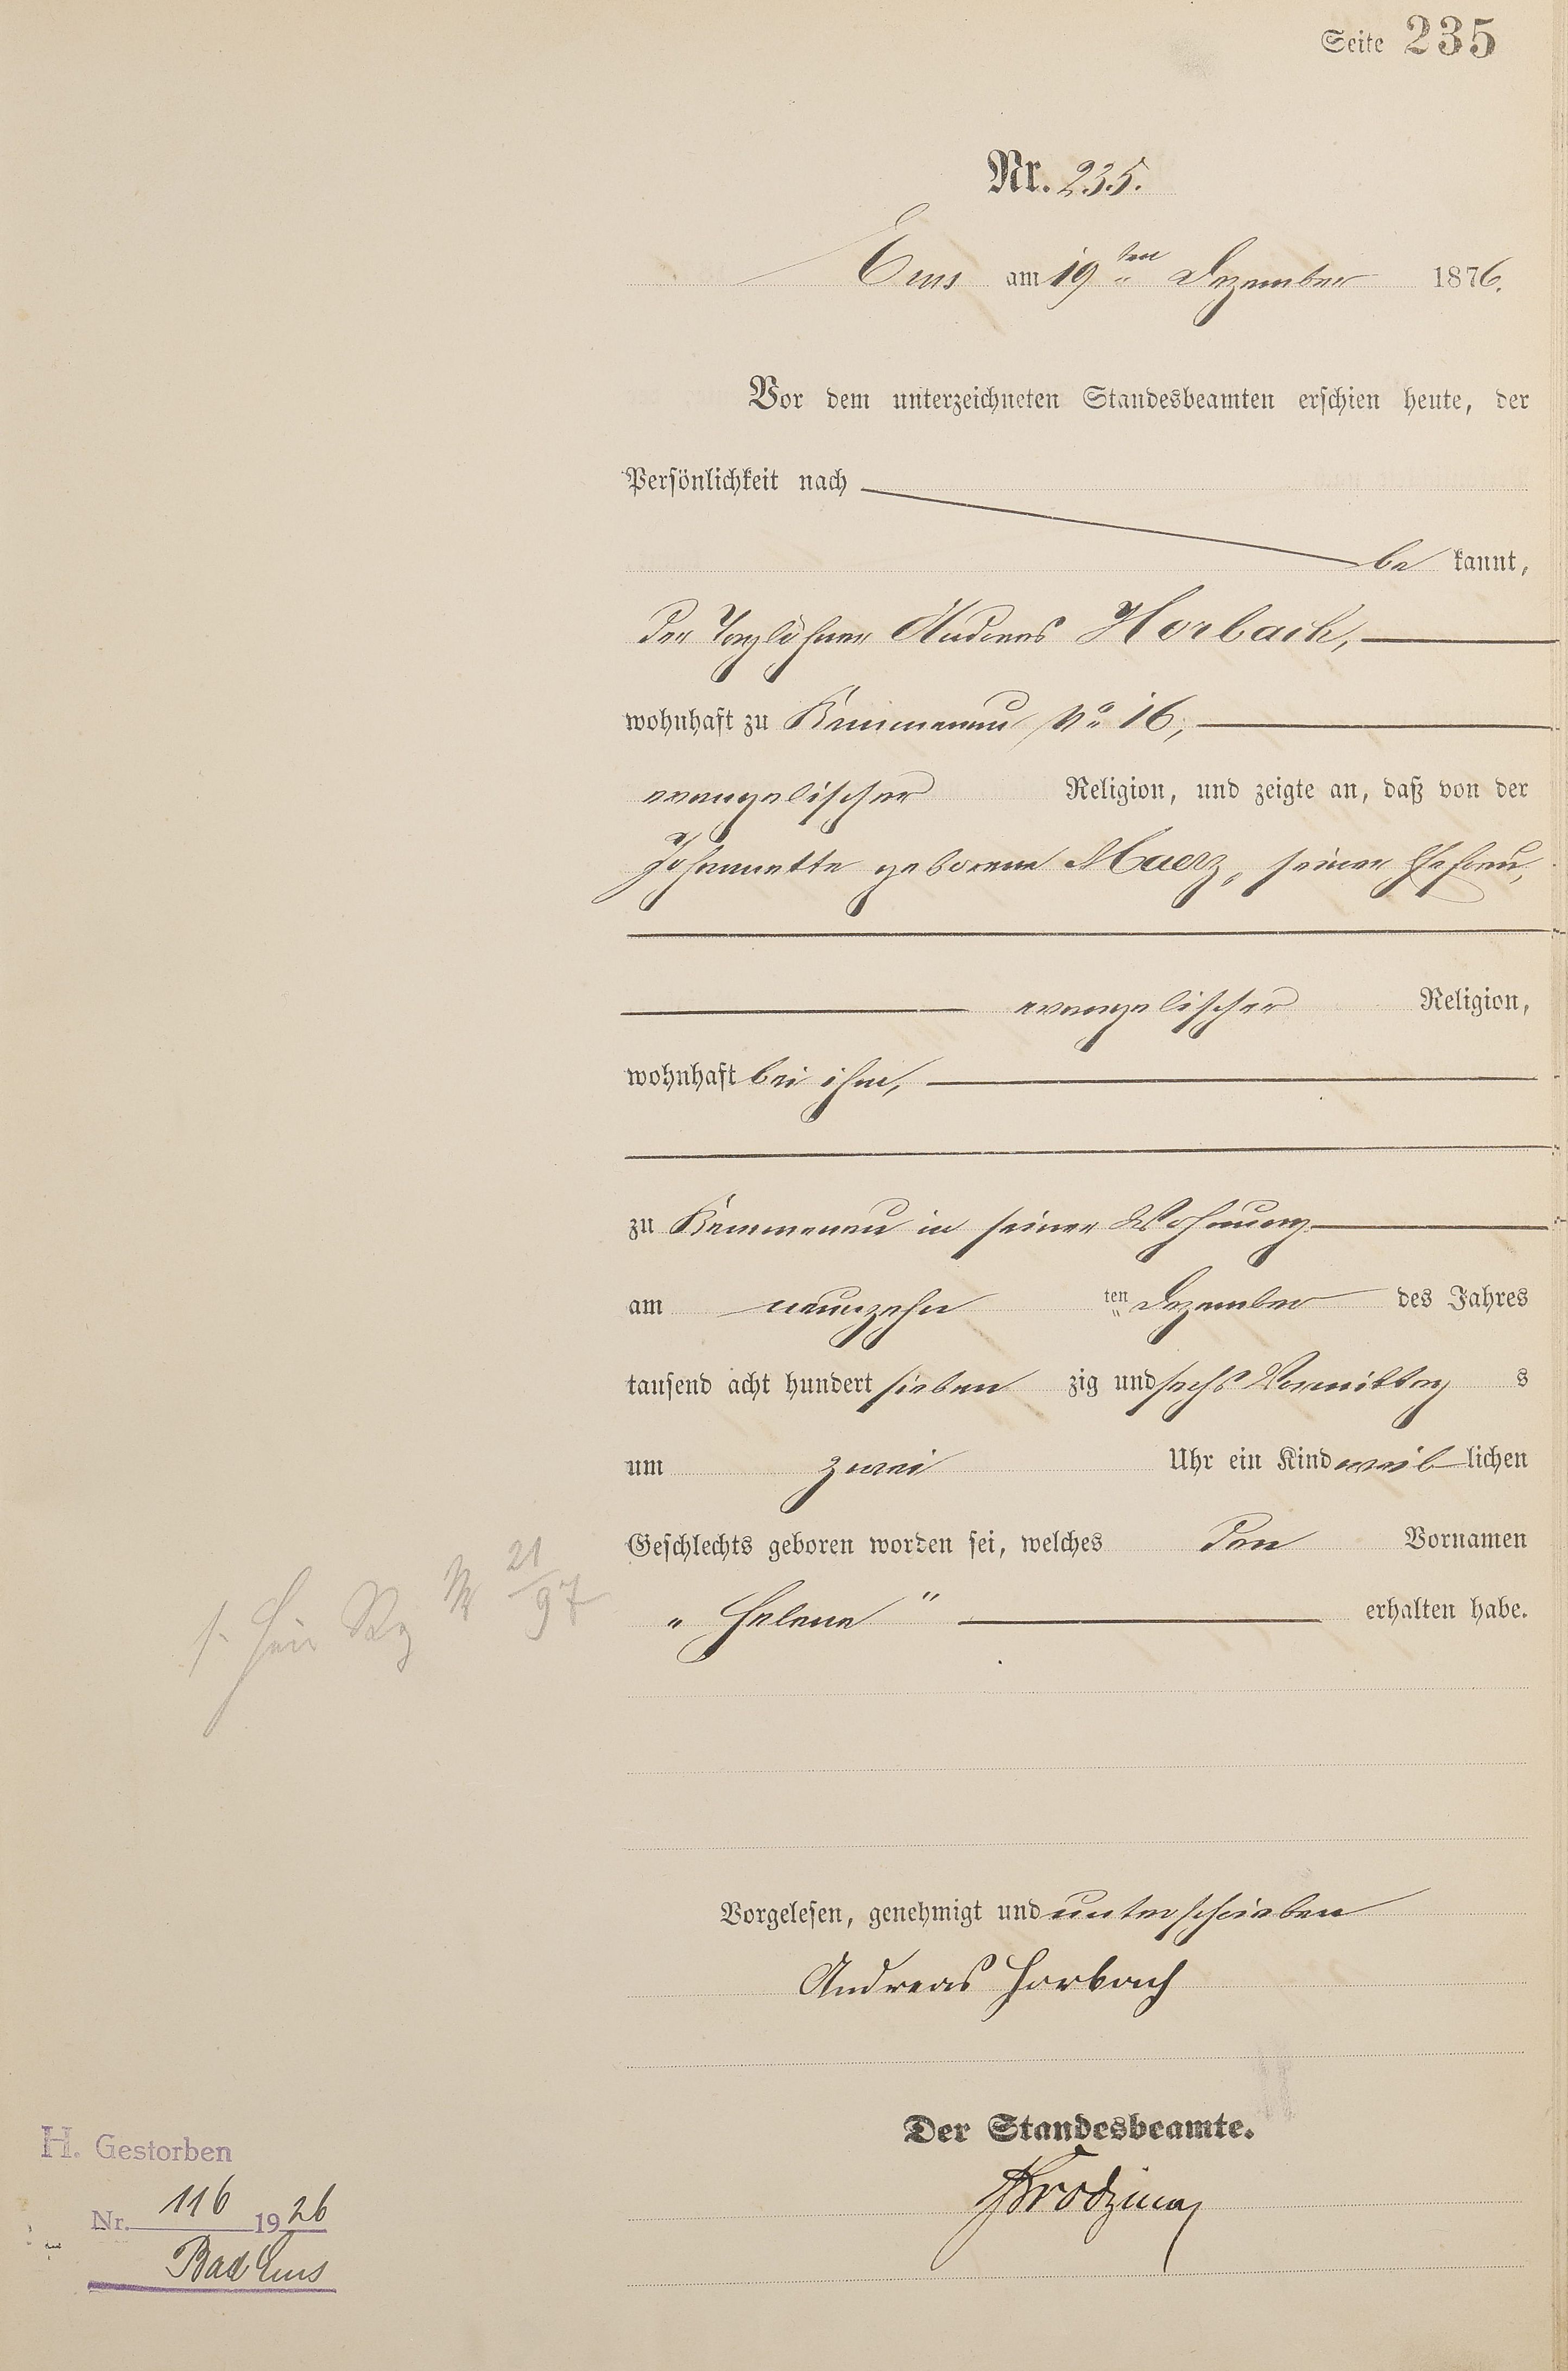 Seite 235
Nr. 235.
Ems am 19ten Dezember 1876.
Vor dem unterzeichneten Standesbeamten erschien heute, der
Persönlichkeit nach
be kannt,
der Taglöhner Andreas Horbach,
wohnhaft zu Kemmenau No 16,
evangelischer Religion, und zeigte an, daß von der
Johannette geborene Maerz, seiner Ehefrau,
evangelischer Religion,
wohnhaft bei ihm,
zu Kemmenau in seiner Wohnung
am neunzehn ten Dezember des Jahres
tausend acht hundert sieben zig und sechs Vormittag s
um zwei Uhr ein Kind weib lichen
Geschlechts geboren worden sei, welches den Vornamen
„Helene" erhalten habe.
s. Heir Rg Nr 21/97
Vorgelesen, genehmigt und unterschrieben
Andreas Horbach
Der Standesbeamte.
H. Gestorben
Nr. 116 1926
Bad Ems